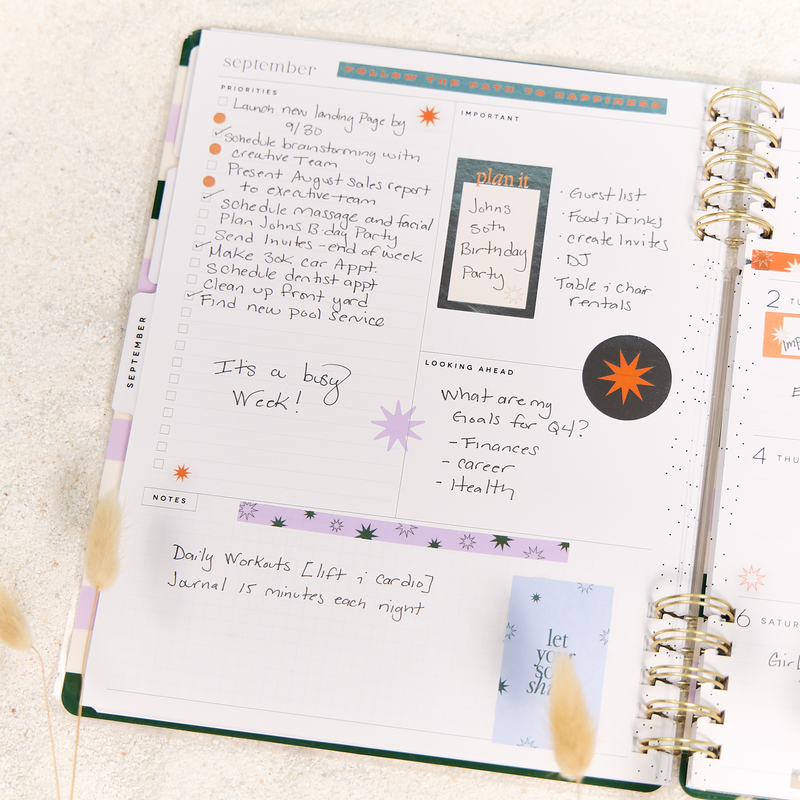 september
FOLLOW THE PATH TO HAPPINESS
PRIORITIES
Launch new landing Page by
9/30
schedule brainstorming with
creative Team
Present August sales report
to executive team
schedule massage and facial
Plan Johns B-day Party
Send Invites - end of week
Make 30K car Appt.
Schedule dentist appt
Clean up front yard
Find new pool service
It's a busy
Week!
IMPORTANT
plan it
Johns
50th
Birthday
Party
· Guest list
· Food & Drinks
· create Invites
· DJ
Table & chair
rentals
LOOKING AHEAD
What are my
Goals for Q4?
- Finances
- career
- Health
SEPTEMBER
NOTES
Daily Workouts [lift & cardio]
Journal 15 minutes each night
let
your
2
4 THU
6 SATUR